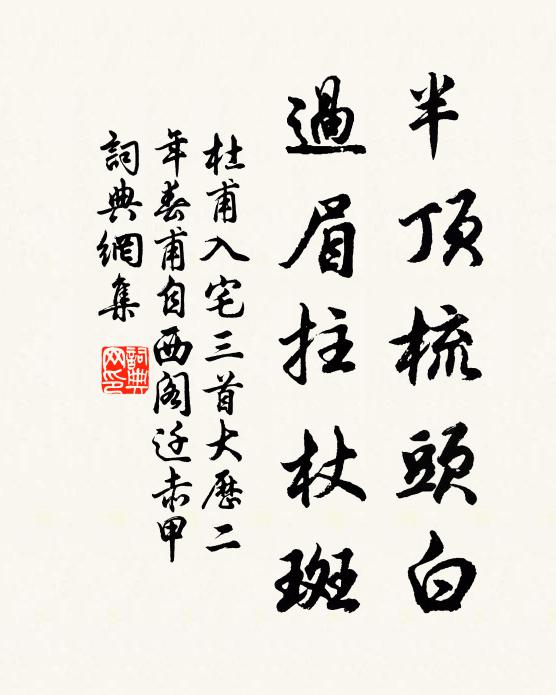 半頂梳頭白
過眉拄杖斑
杜甫入宅三首大歷二
年春甫自西閣迁赤甲
詞典網集
詞典
网印